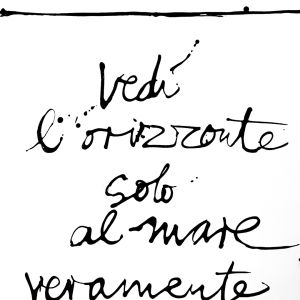 Vedi
l'orizzonte
solo
al mare
veramente